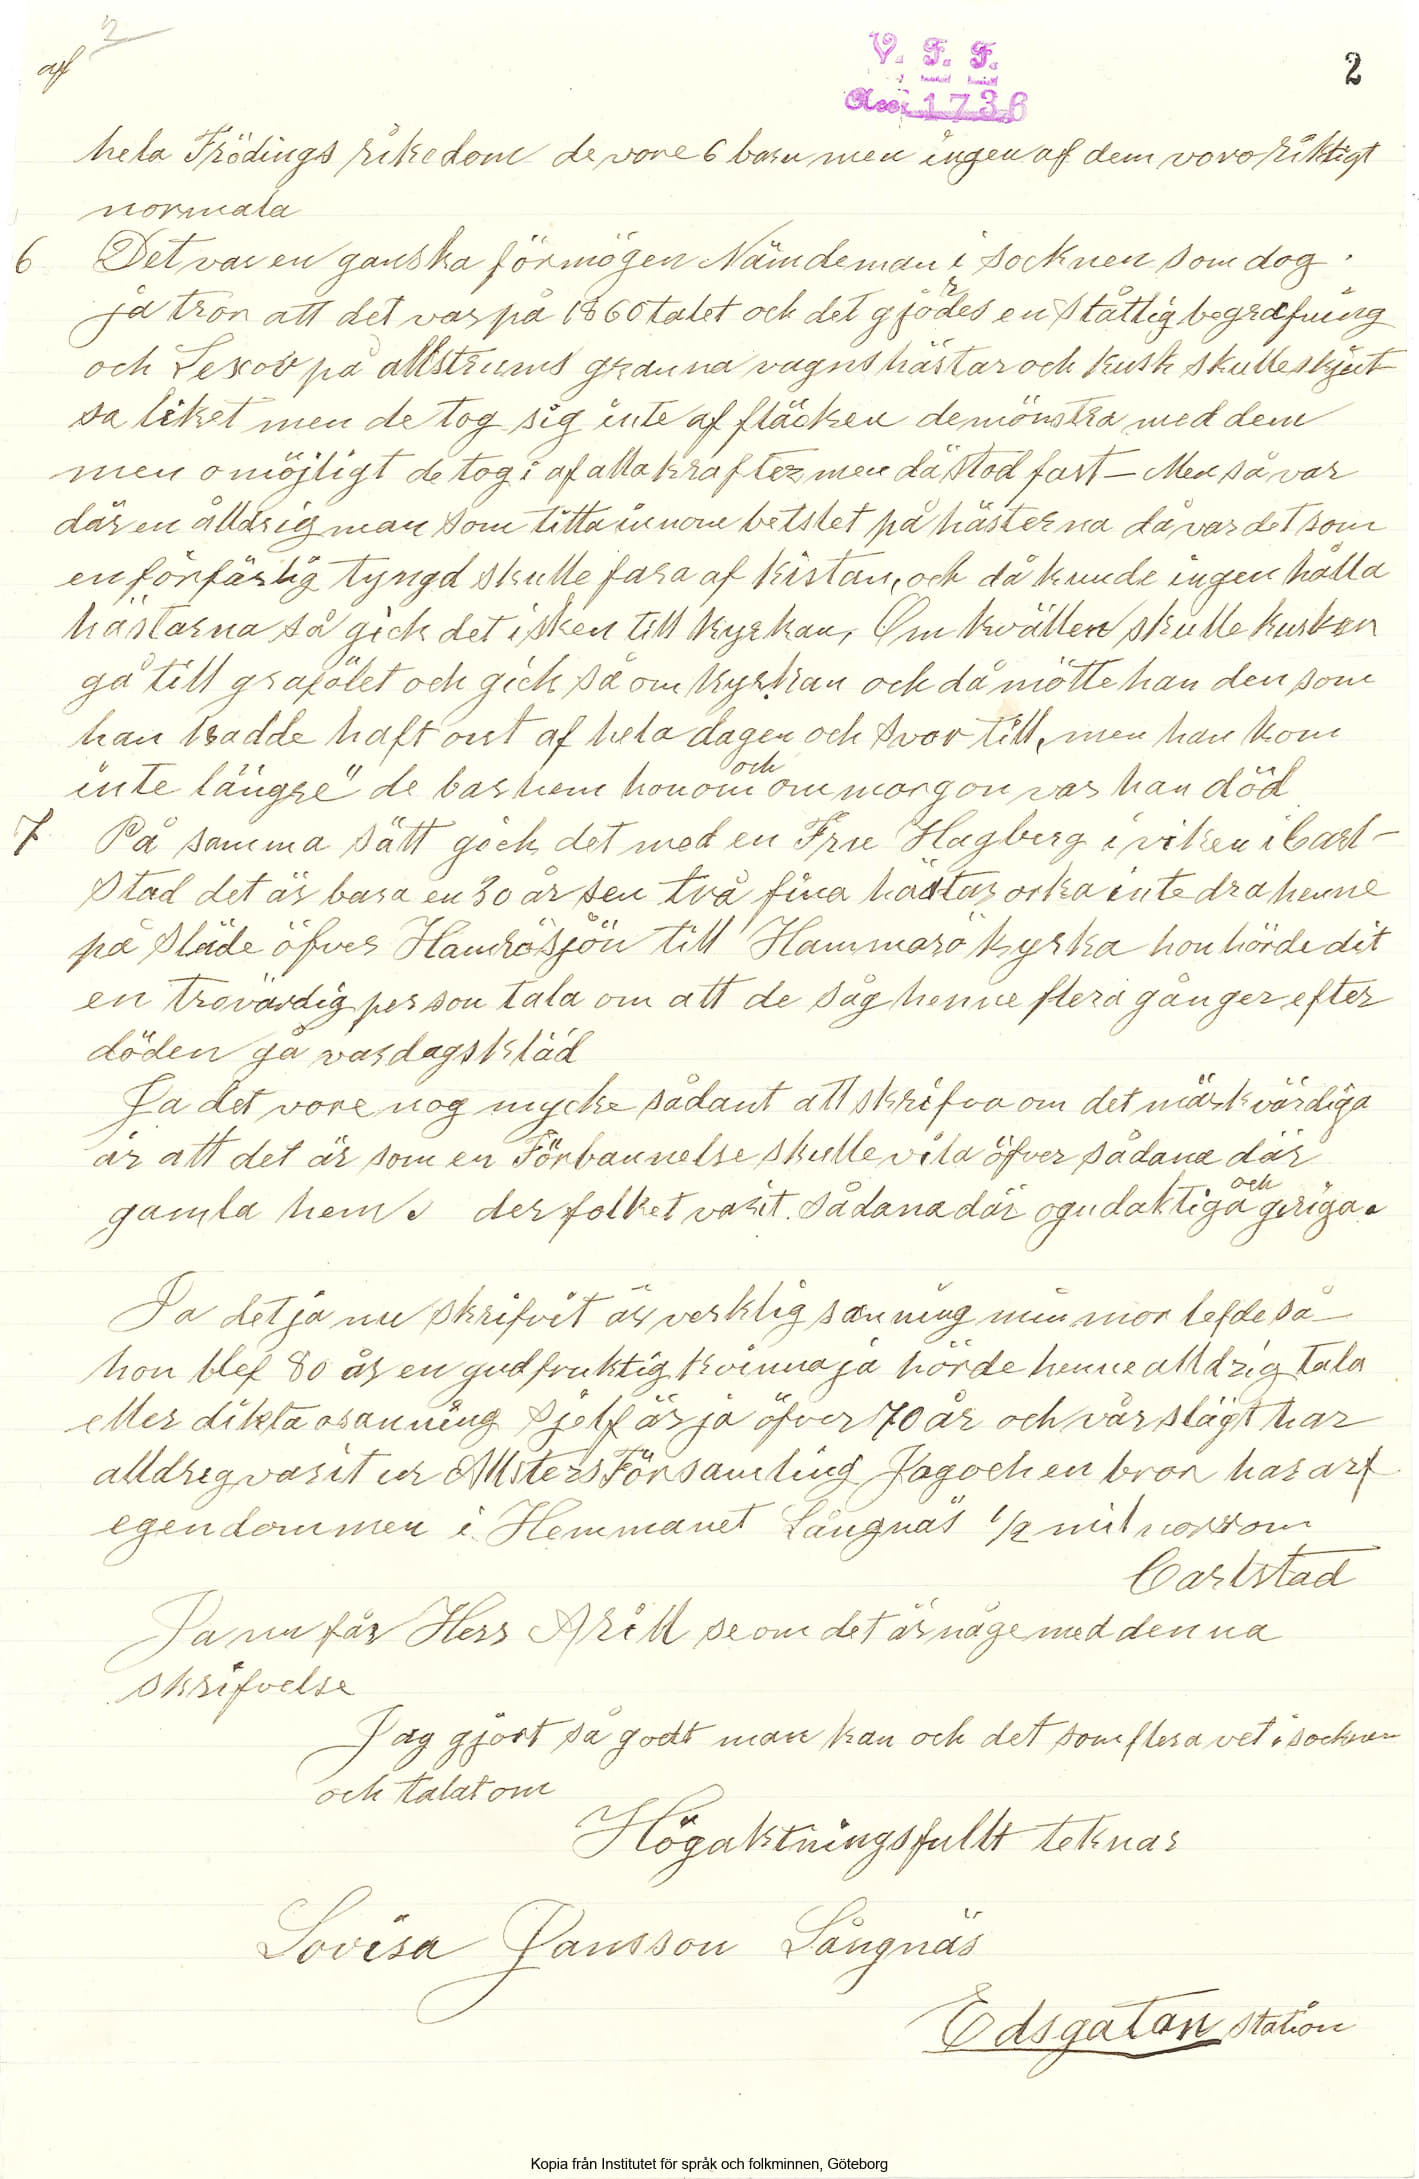 2
af
V. F. F.
Acc. 1736
2
hela Frödings rikedom de vore 6 barn men ingen af dem voro riktigt
normala
6 Det var en ganska förmögen Nämdeman i socknen som dog.
ja tror att det var på 1860 talet och det gjordes en ståttlig begrafning
och på allstrums granna vagnshästar och kusk skulle skjut
sa liket men de tog sig inte af fläcken de mönstra med dem
men omöjligt de tog i af alla krafter men dä stod fast – Men så var
där en ålldrig man som titta innom betslet på hästerna då var det som
en förfärlig tyngd skulle fara af kistan, och då kunde ingen hålla
hästarna så gick det i sken till kyrkan, Om kvällen skulle kusken
gå till grafölet och gick så om kyrkan och då mötte han den som
han hadde haft ont af hela dagen och svor till, men han kom
inte längre" de bar hem honom och om morgon var han död
7 På samma sätt gick det med en Fru Hagberg i viken i Carl-
stad det är bara en 30 år sen två fina hästar orka inte dra henne
på släde öfver Hamrösjön till Hammarö kyrka hon hörde dit
en trovärdig person tala om att de såg henne flera gånger efter
döden gå vardagskläd
Ja det vore nog mycke sådant att skrifva om det märkvärdiga
är att det är som en Förbannelse skulle vila öfver sådana där
gamla hem. der folket varit sådana där ogudaktiga och giriga.
Ja det ja nu skrifvit är verklig sanning min mor lefde så
hon blef 80 år en gudfruktig kvinna ja hörde henne alldrig tala
eller dikta osanning sjelf är ja öfver 70 år och vår slägt har
alldreg varit ur Allsters Församling Jag och en bror har ärf
egendommen i Hemmanet Långnäs 1/2 mil norr om
Carlstad
Ja nu får Herr Arill se om det är någe med denna
skrifvelse
Jag gjort så godt man kan och det som flera vet i socknen
och talat om
Högaktningsfullt teknar
Lovisa Jansson Långnäs
Edsgatan station
Kopia från Institutet för språk och folkminnen, Göteborg